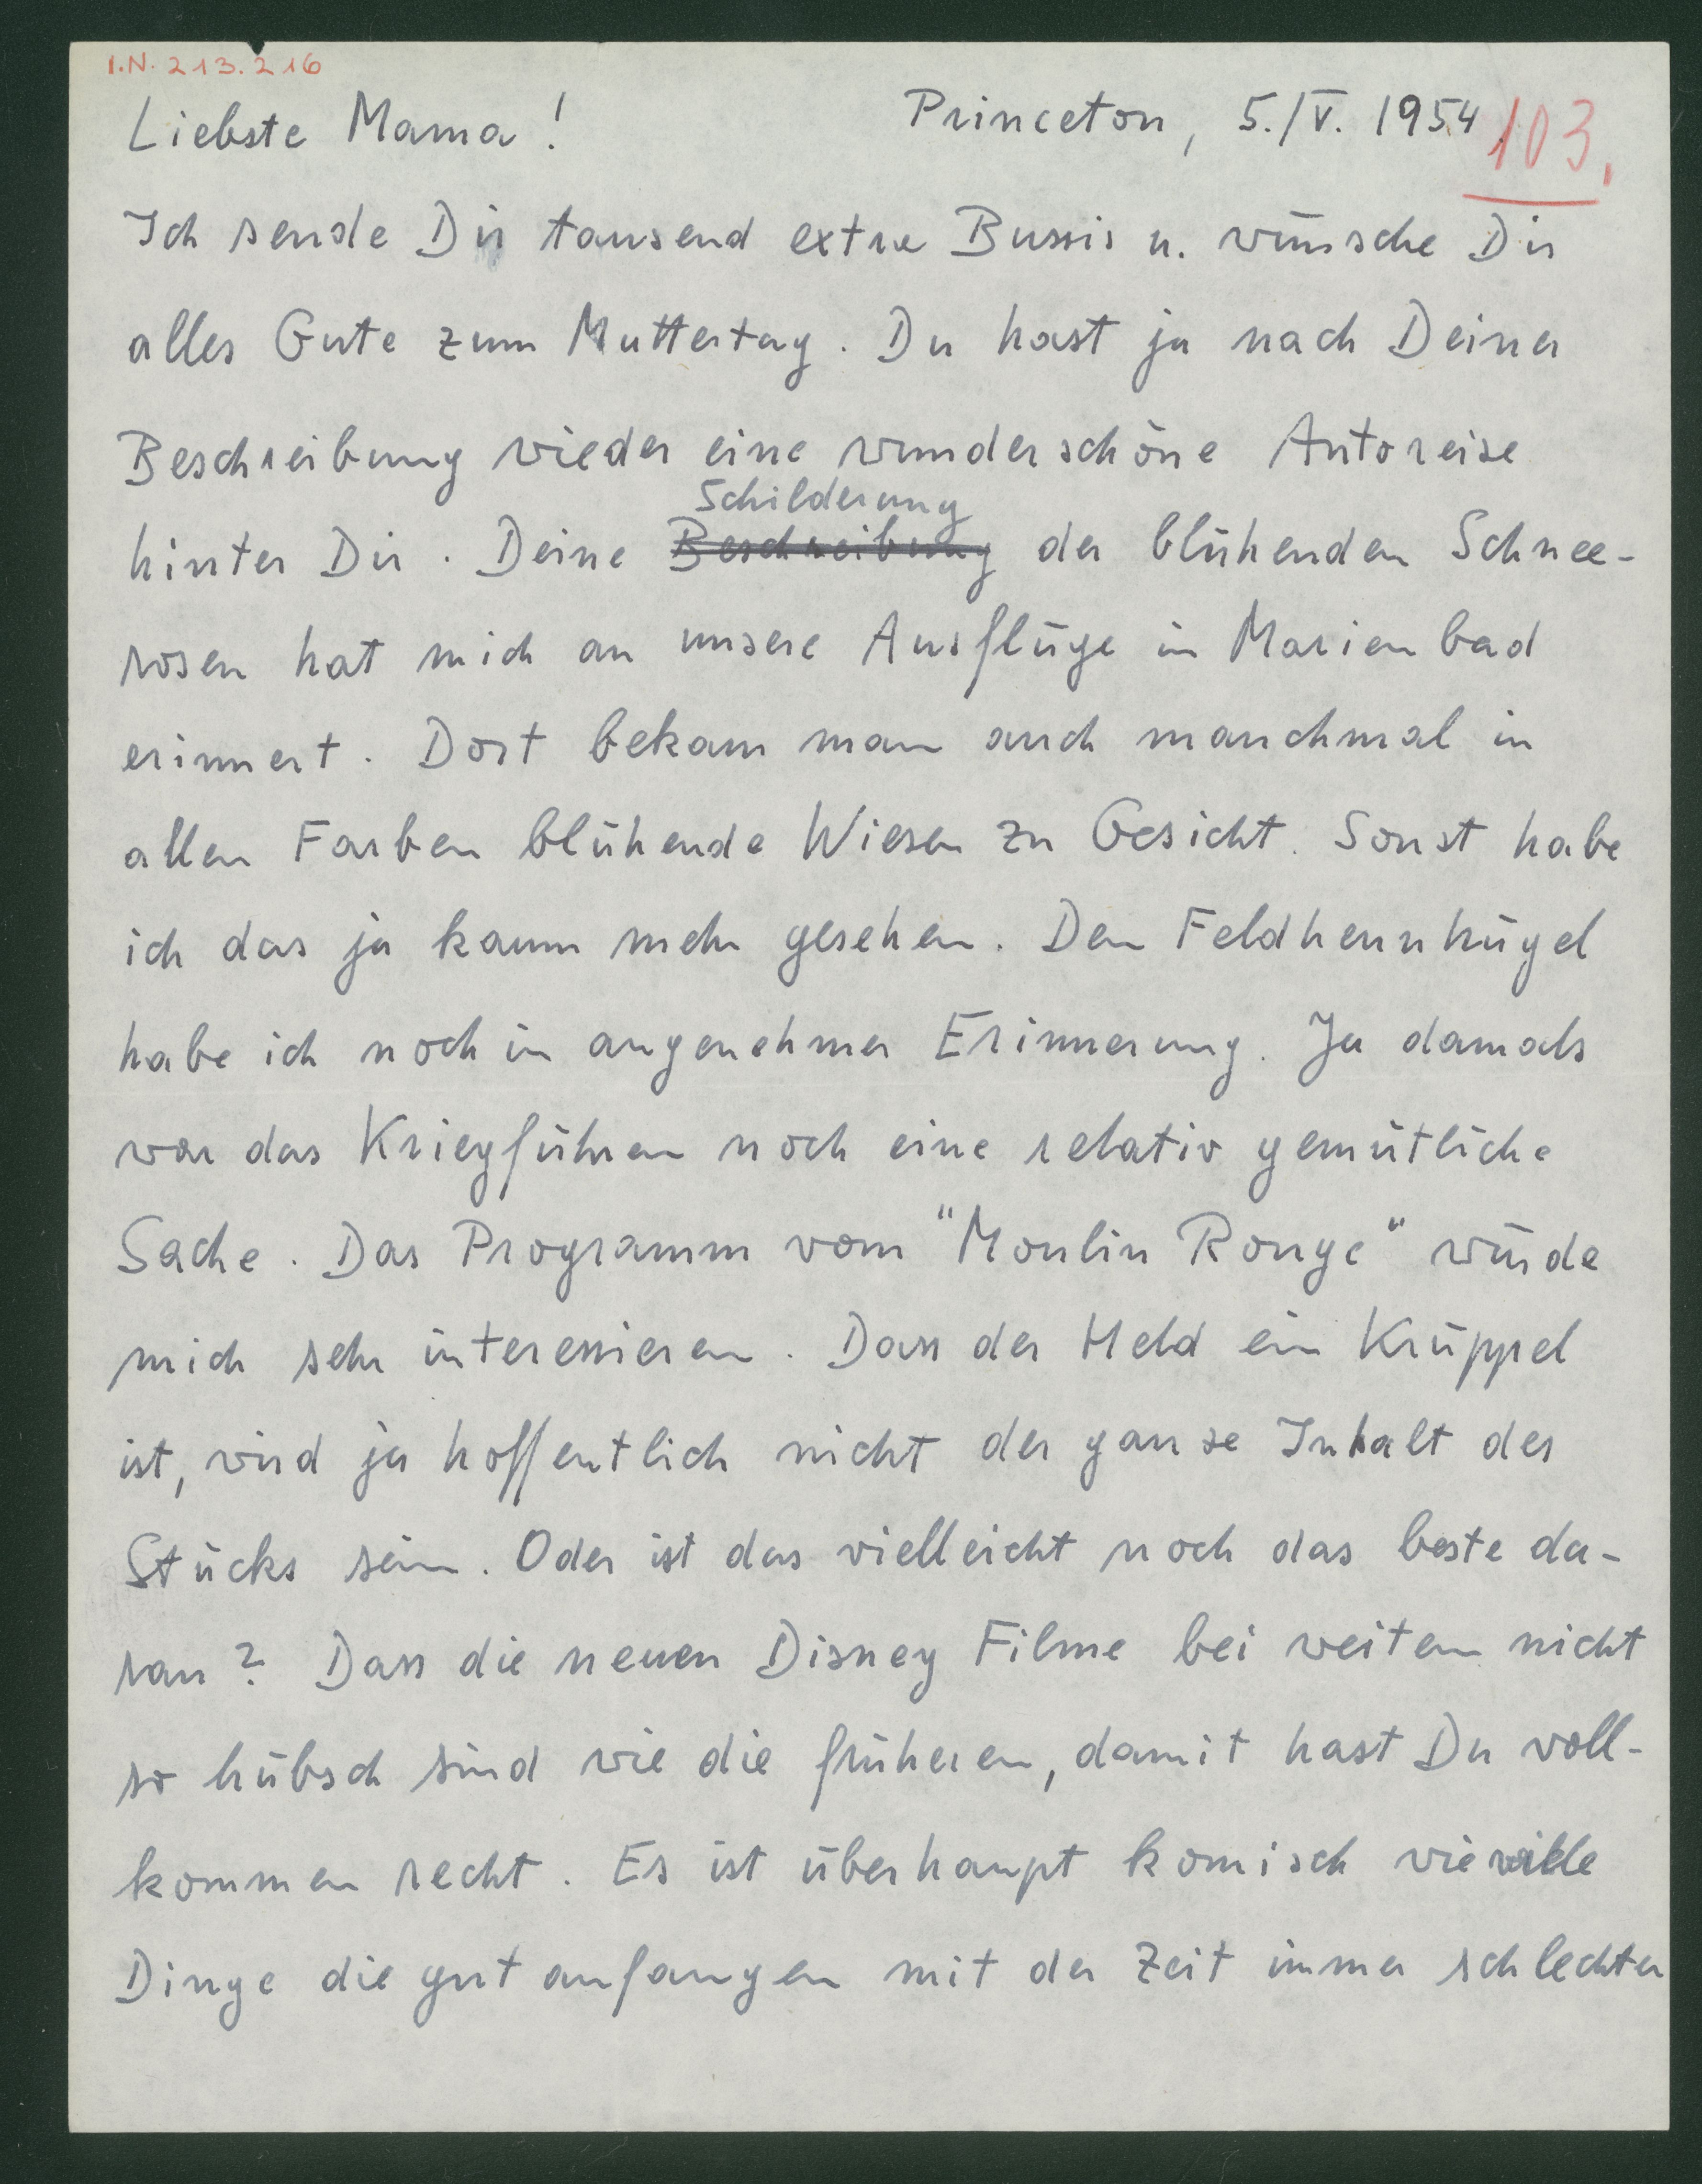 I.N. 213.216
Liebste Mama! Princeton, 5./V. 1954.
103.
Ich sende Dir tausend extra Bussis u. wünsche Dir
alles Gute zum Muttertag. Du hast ja nach Deiner
Beschreibung wieder eine wunderschöne Autoreise
Schilderung
hinter Dir. Deine Beschreibung der blühenden Schnee-
rosen hat mich an unsere Ausflüge in Marienbad
erinnert. Dort bekam man auch manchmal in
allen Farben blühende Wiesen zu Gesicht. Sonst habe
ich das ja kaum mehr gesehen. Den Feldherrnhügel
habe ich noch in angenehmer Erinnerung. Ja damals
war das Kriegführen noch eine relativ gemütliche
Sache. Das Programm vom "Moulin Rouge" würde
mich sehr interessieren. Dass der Held ein Krüppel
ist, wird ja hoffentlich nicht der ganze Inhalt des
Stücks sein. Oder ist das vielleicht noch das beste da-
ran? Dass die neuen Disney Filme bei weitem nicht
so hübsch sind wie die früheren, damit hast Du voll-
kommen recht. Es ist überhaupt komisch wie viele
Dinge die gut anfangen mit der Zeit immer schlechter